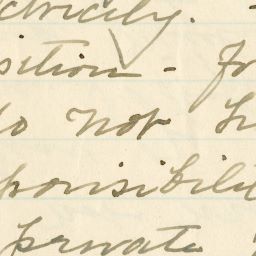 ctricity. -
sition - fr
do not h
ponsibilit
private